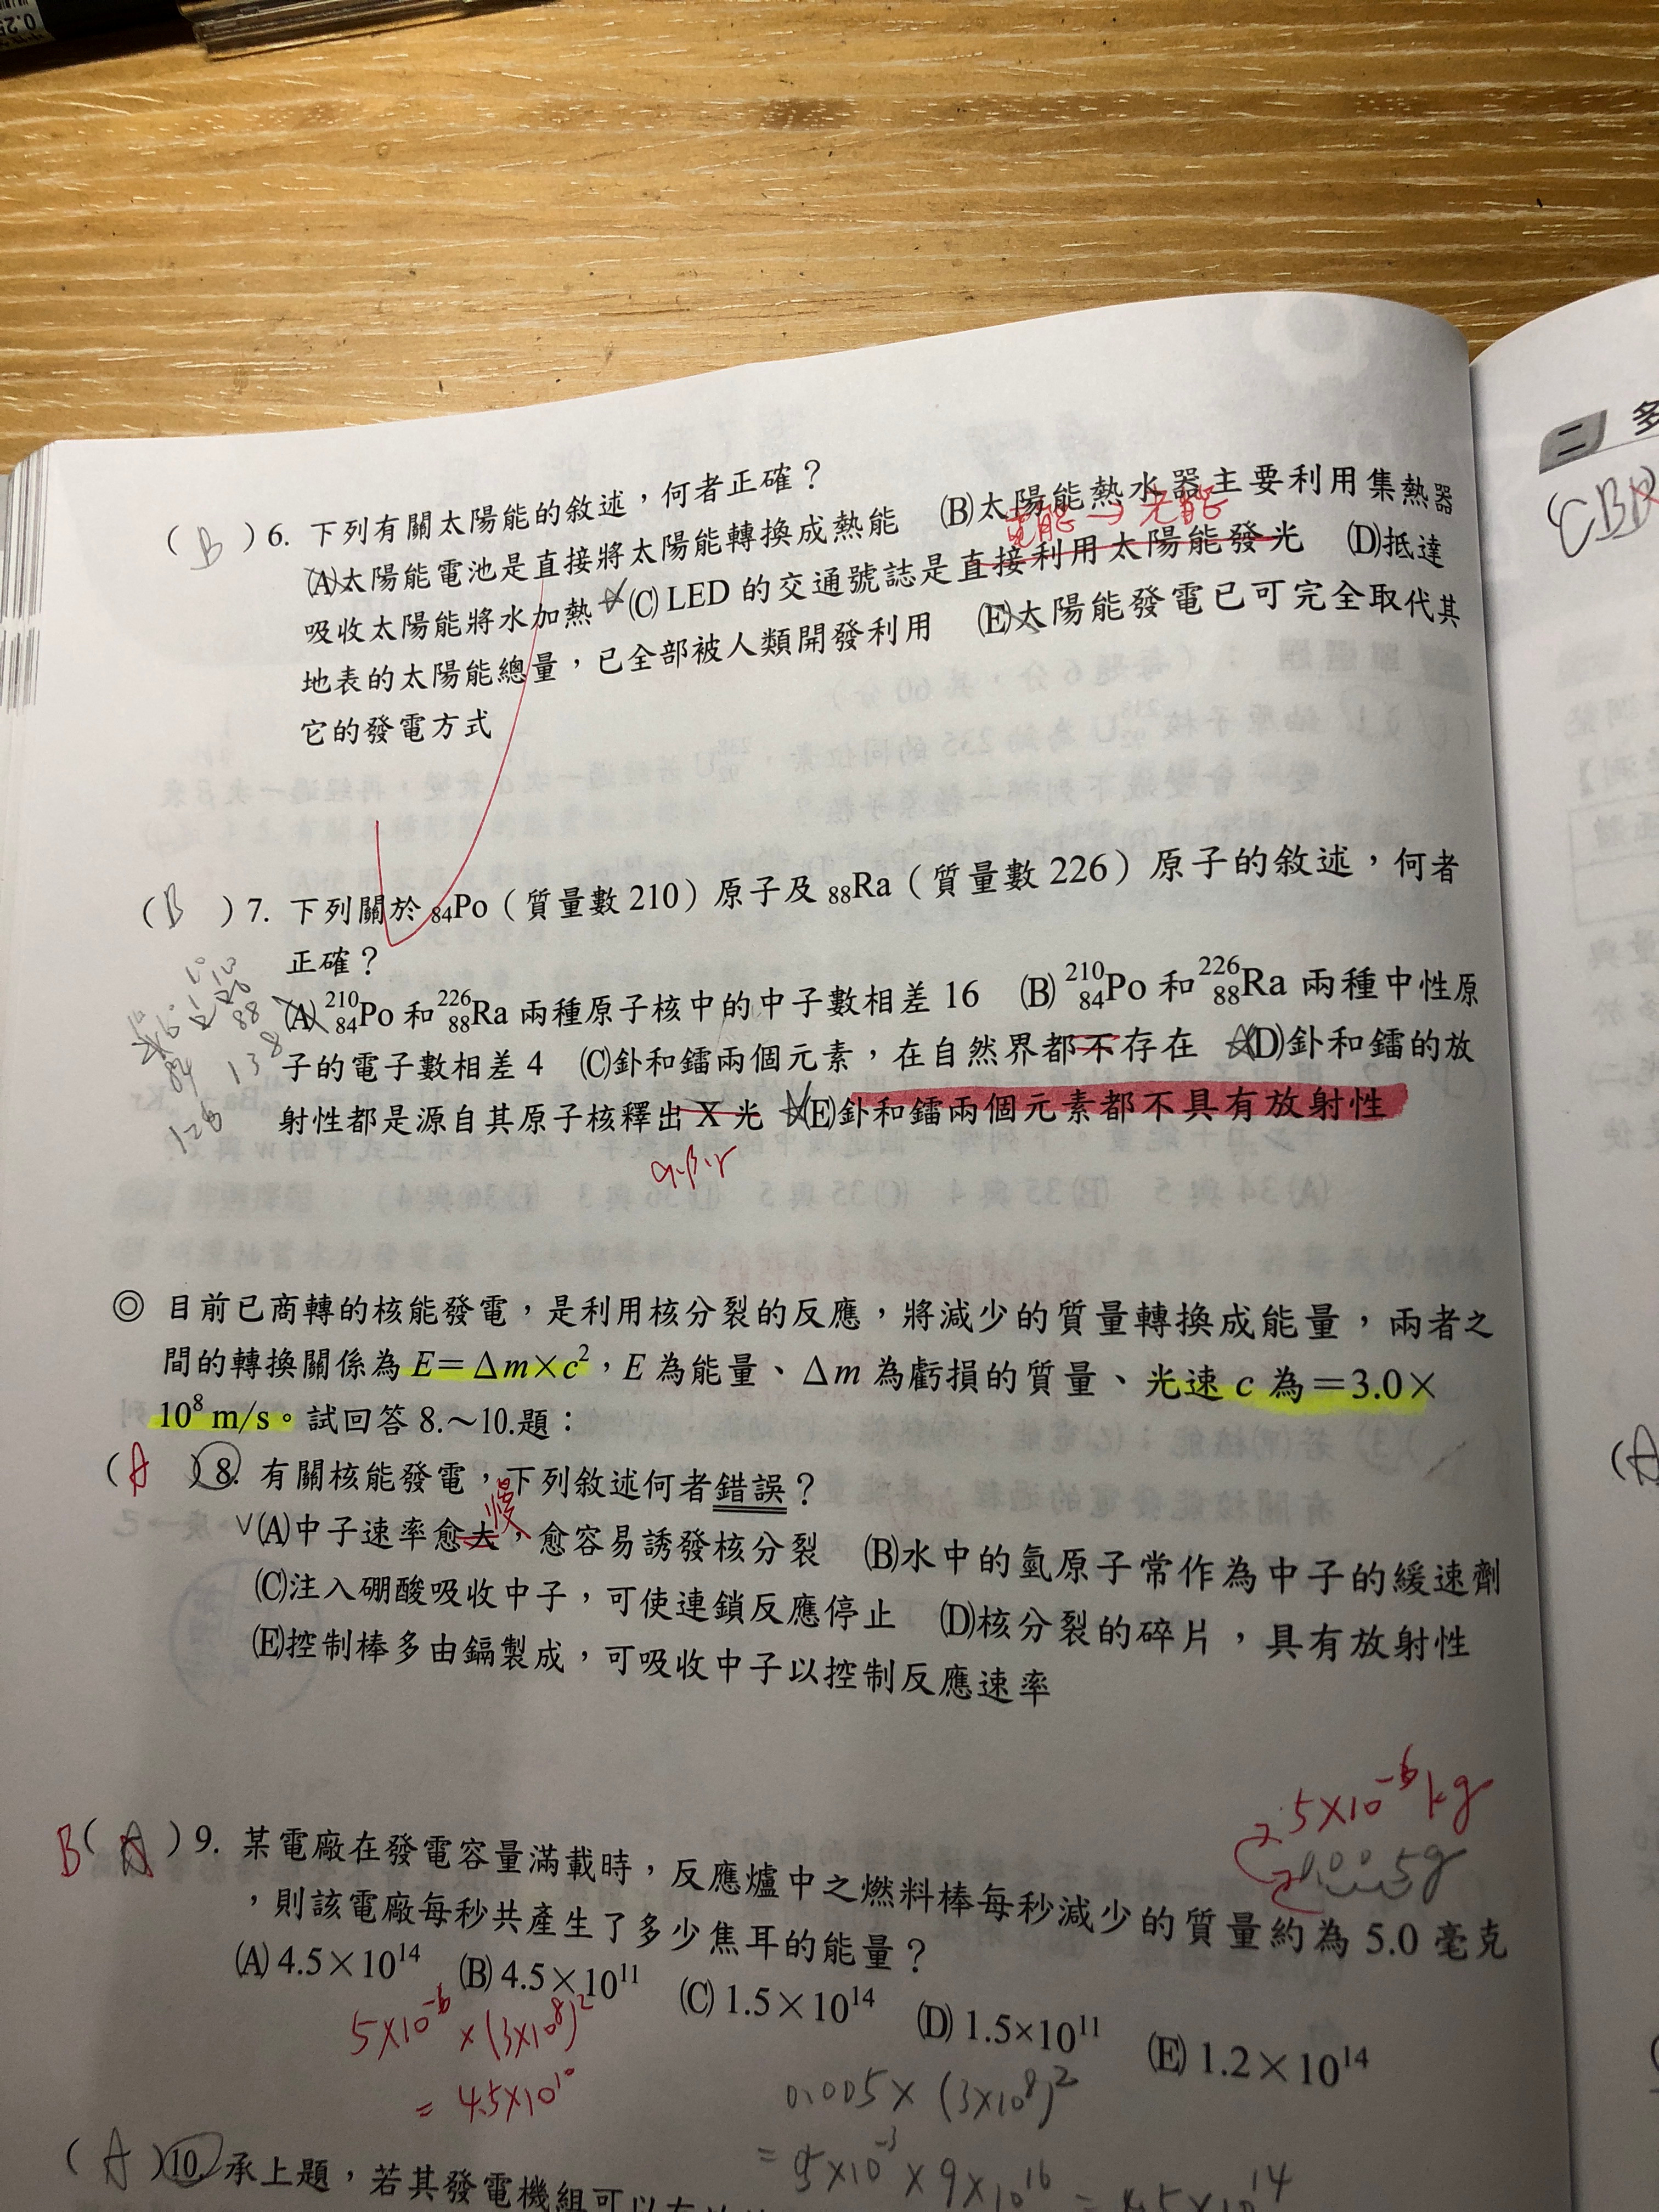 0.25
( B )6. 下列有關太陽能的敘述，何者正確？
(A)太陽能電池是直接將太陽能轉換成熱能 (B)太陽能熱水器主要利用集熱器
電能→光能
吸收太陽能將水加熱 (C) LED 的交通號誌是直接利用太陽能發光 (D)抵達
地表的太陽能總量，已全部被人類開發利用 (E)太陽能發電已可完全取代其
它的發電方式
二 多
CBA
( B )7. 下列關於 ₈₄Po（質量數 210）原子及 ₈₈Ra（質量數 226）原子的敘述，何者
正確？
(A) ²¹⁰₈₄Po 和 ²²⁶₈₈Ra 兩種原子核中的中子數相差 16 (B) ²¹⁰₈₄Po 和 ²²⁶₈₈Ra 兩種中性原
子的電子數相差 4 (C)釙和鐳兩個元素，在自然界都不存在 (D)釙和鐳的放
射性都是源自其原子核釋出 X 光 (E)釙和鐳兩個元素都不具有放射性
α.β.γ
88
138
84
126
◎ 目前已商轉的核能發電，是利用核分裂的反應，將減少的質量轉換成能量，兩者之
間的轉換關係為 E＝Δm×c²，E 為能量、Δm 為虧損的質量、光速 c 為＝3.0×
10⁸ m/s。試回答 8.～10.題：
( A )8. 有關核能發電，下列敘述何者錯誤？
慢
∨(A)中子速率愈大，愈容易誘發核分裂 (B)水中的氫原子常作為中子的緩速劑
(C)注入硼酸吸收中子，可使連鎖反應停止 (D)核分裂的碎片，具有放射性
(E)控制棒多由鎘製成，可吸收中子以控制反應速率
5×10⁻⁶kg
B( A )9. 某電廠在發電容量滿載時，反應爐中之燃料棒每秒減少的質量約為 5.0 毫克
，則該電廠每秒共產生了多少焦耳的能量？
(A) 4.5×10¹⁴ (B) 4.5×10¹¹ (C) 1.5×10¹⁴ (D) 1.5×10¹¹ (E) 1.2×10¹⁴
5×10⁻⁶×(3×10⁸)²
= 4.5×10¹⁰
0.005×(3×10⁸)²
= 5×10⁻³×9×10¹⁶ = 4.5×10¹⁴
( A )10. 承上題，若其發電機組可以
(A